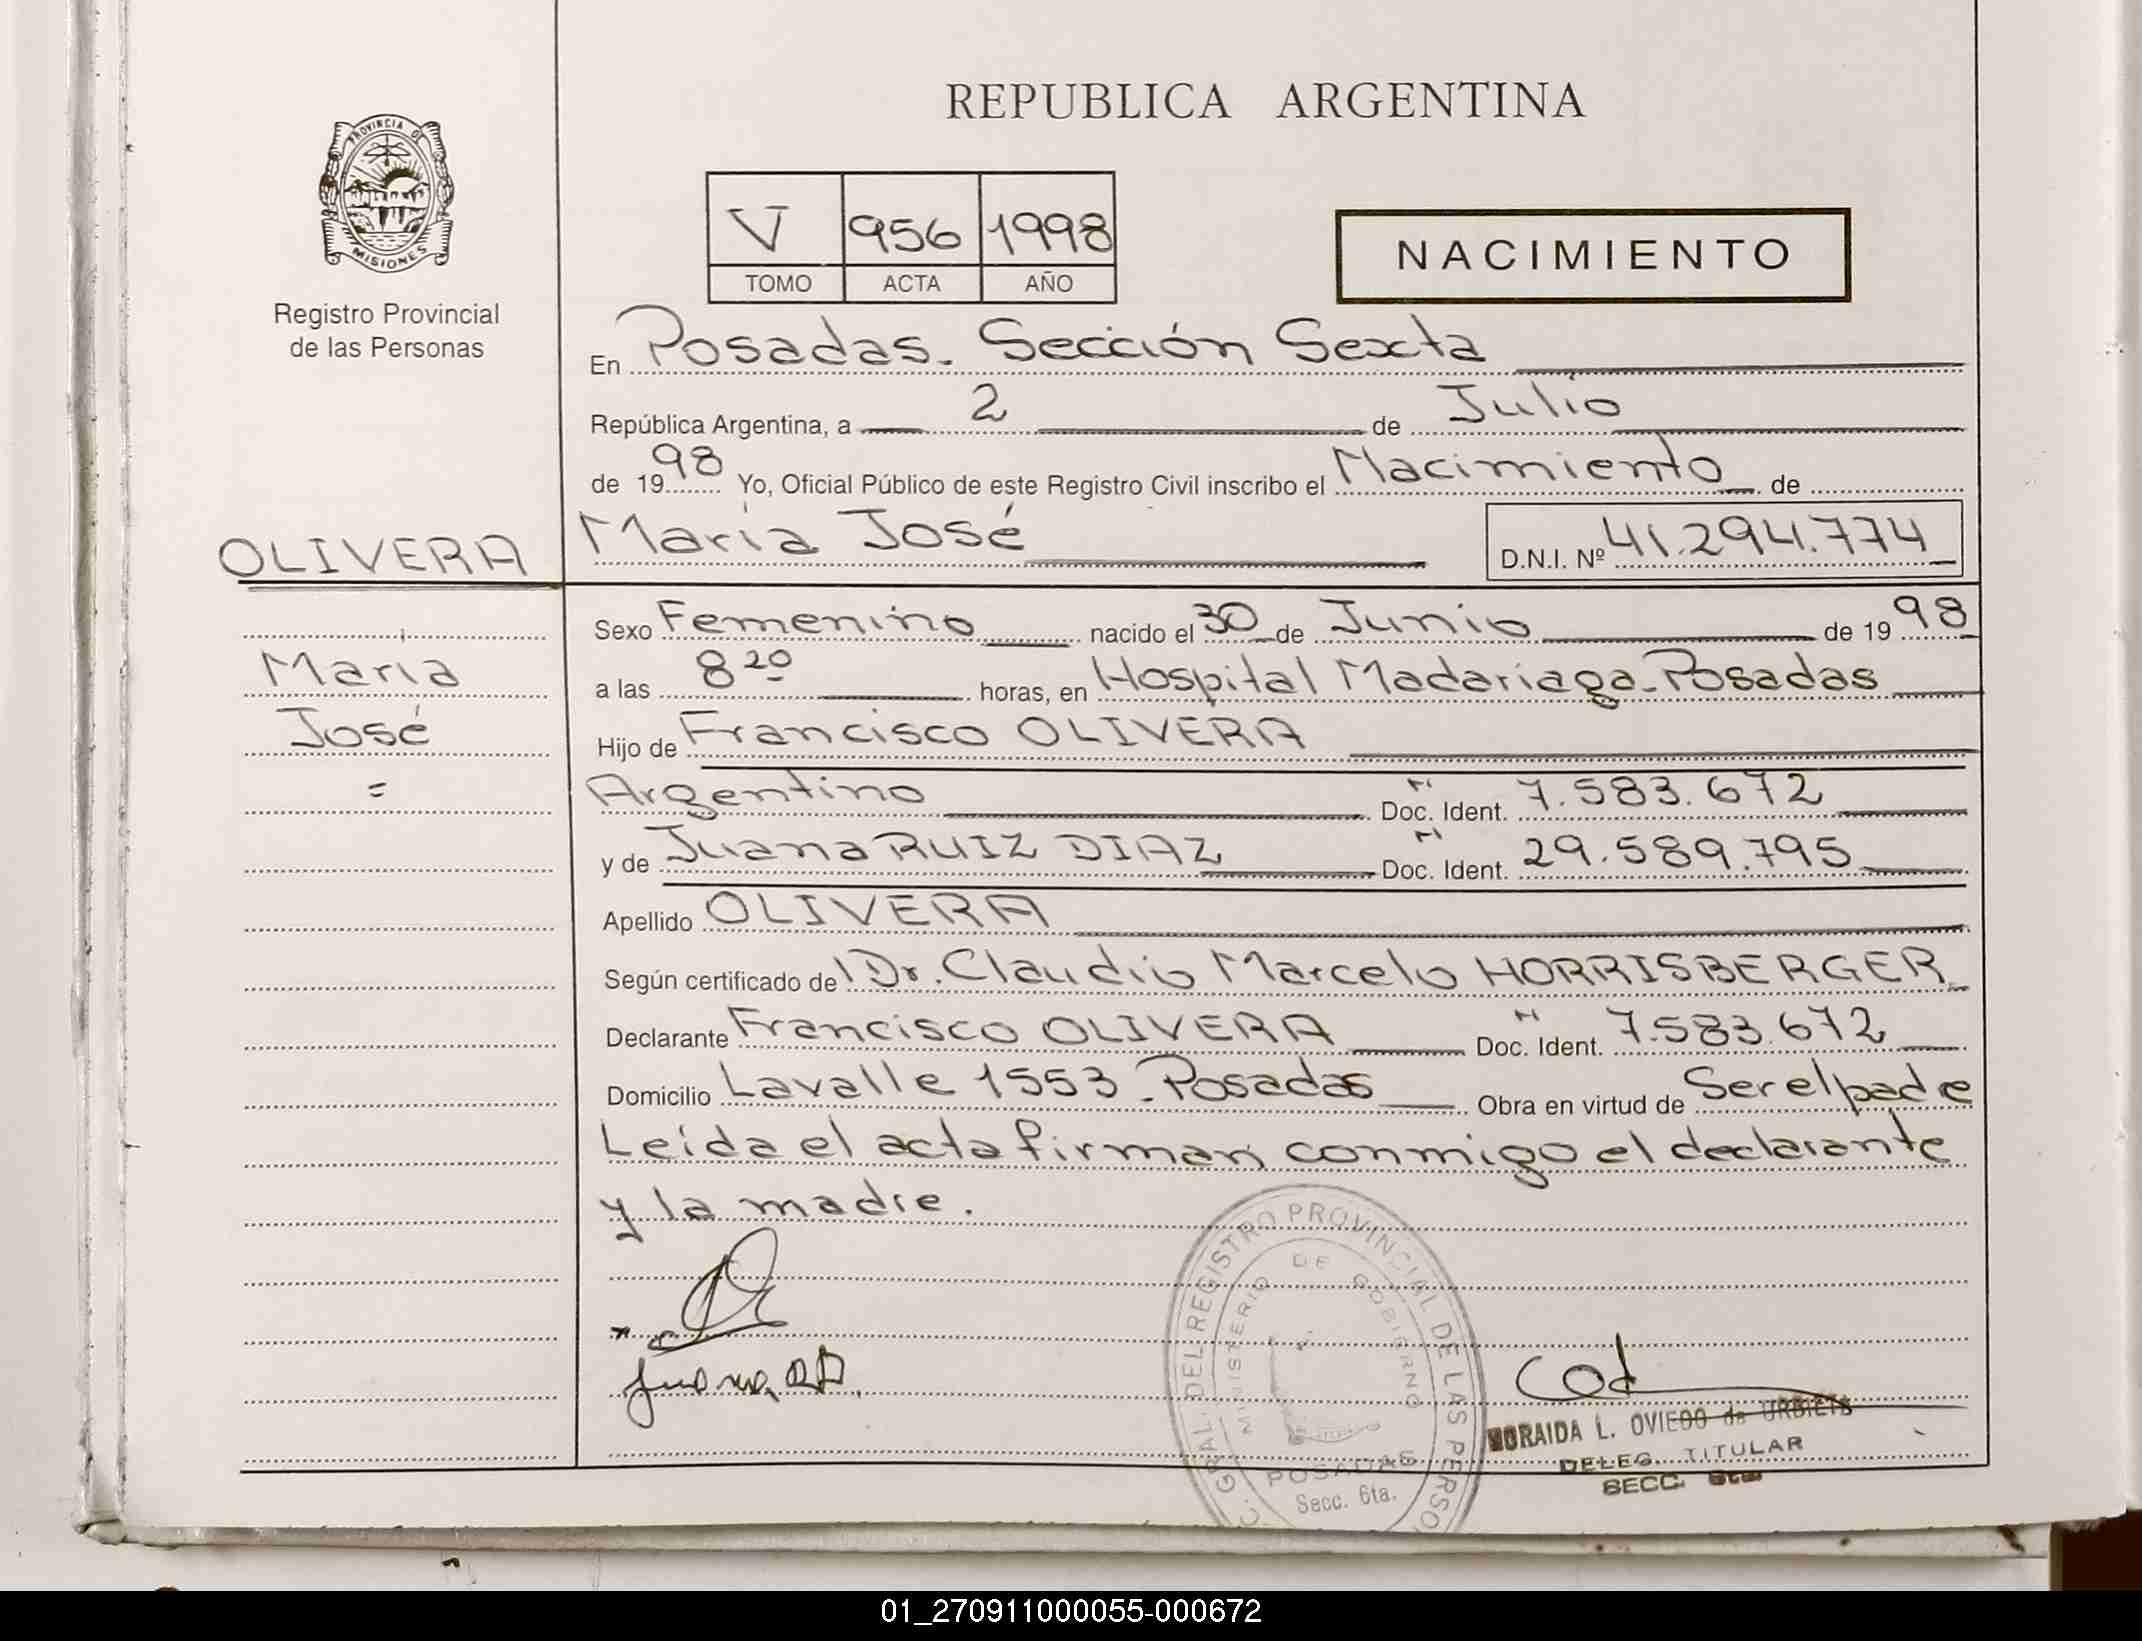 REPUBLICA ARGENTINA
PROVINCIA DE
MISIONES
Registro Provincial
de las Personas
V 956 1998
TOMO ACTA AÑO
NACIMIENTO
En Posadas. Sección Sexta
República Argentina, a 2 de Julio
de 1998 Yo, Oficial Público de este Registro Civil inscribo el Nacimiento de
OLIVERA María José D.N.I. Nº 41.294.774
Sexo Femenino nacido el 30 de Junio de 1998
María
a las 8 20 horas, en Hospital Madariaga-Posadas
José
Hijo de Francisco OLIVERA
=
Argentino Doc. Ident. M 7.583.672
y de Juana RUIZ DIAZ Doc. Ident. M 29.589.795
Apellido OLIVERA
Según certificado de Dr. Claudio Marcelo HORRISBERGER
Declarante Francisco OLIVERA Doc. Ident. M 7.583.672
Domicilio Lavalle 1553-Posadas Obra en virtud de Ser el padre
Leída el acta firman conmigo el declarante
y la madre.
Juana RD.
GRAL. DEL REGISTRO PROVINCIAL DE LAS PERSO
MINISTERIO DE GOBIERNO
POSADAS
Secc. 6ta.
L. OVIEDO de URBIETA
DELEG. TITULAR
SECC. 6ta.
01_270911000055-000672